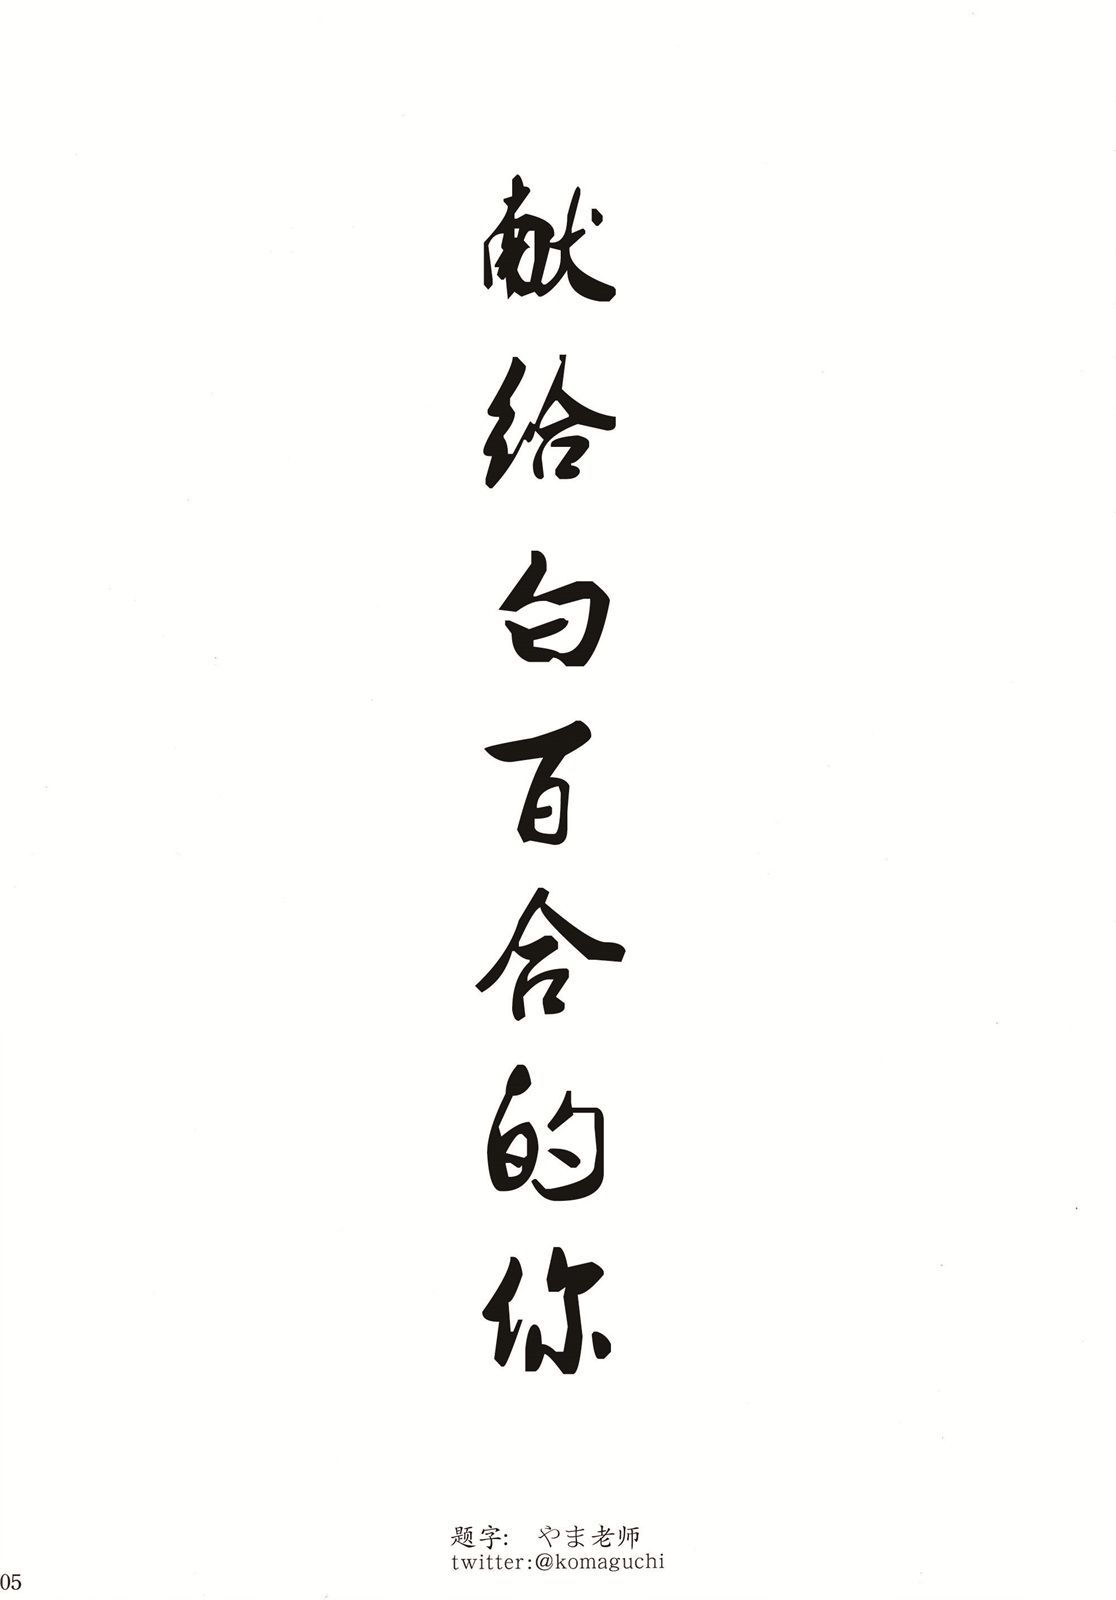 献给白百合的你
题字: やま老师
twitter:@komaguchi
05